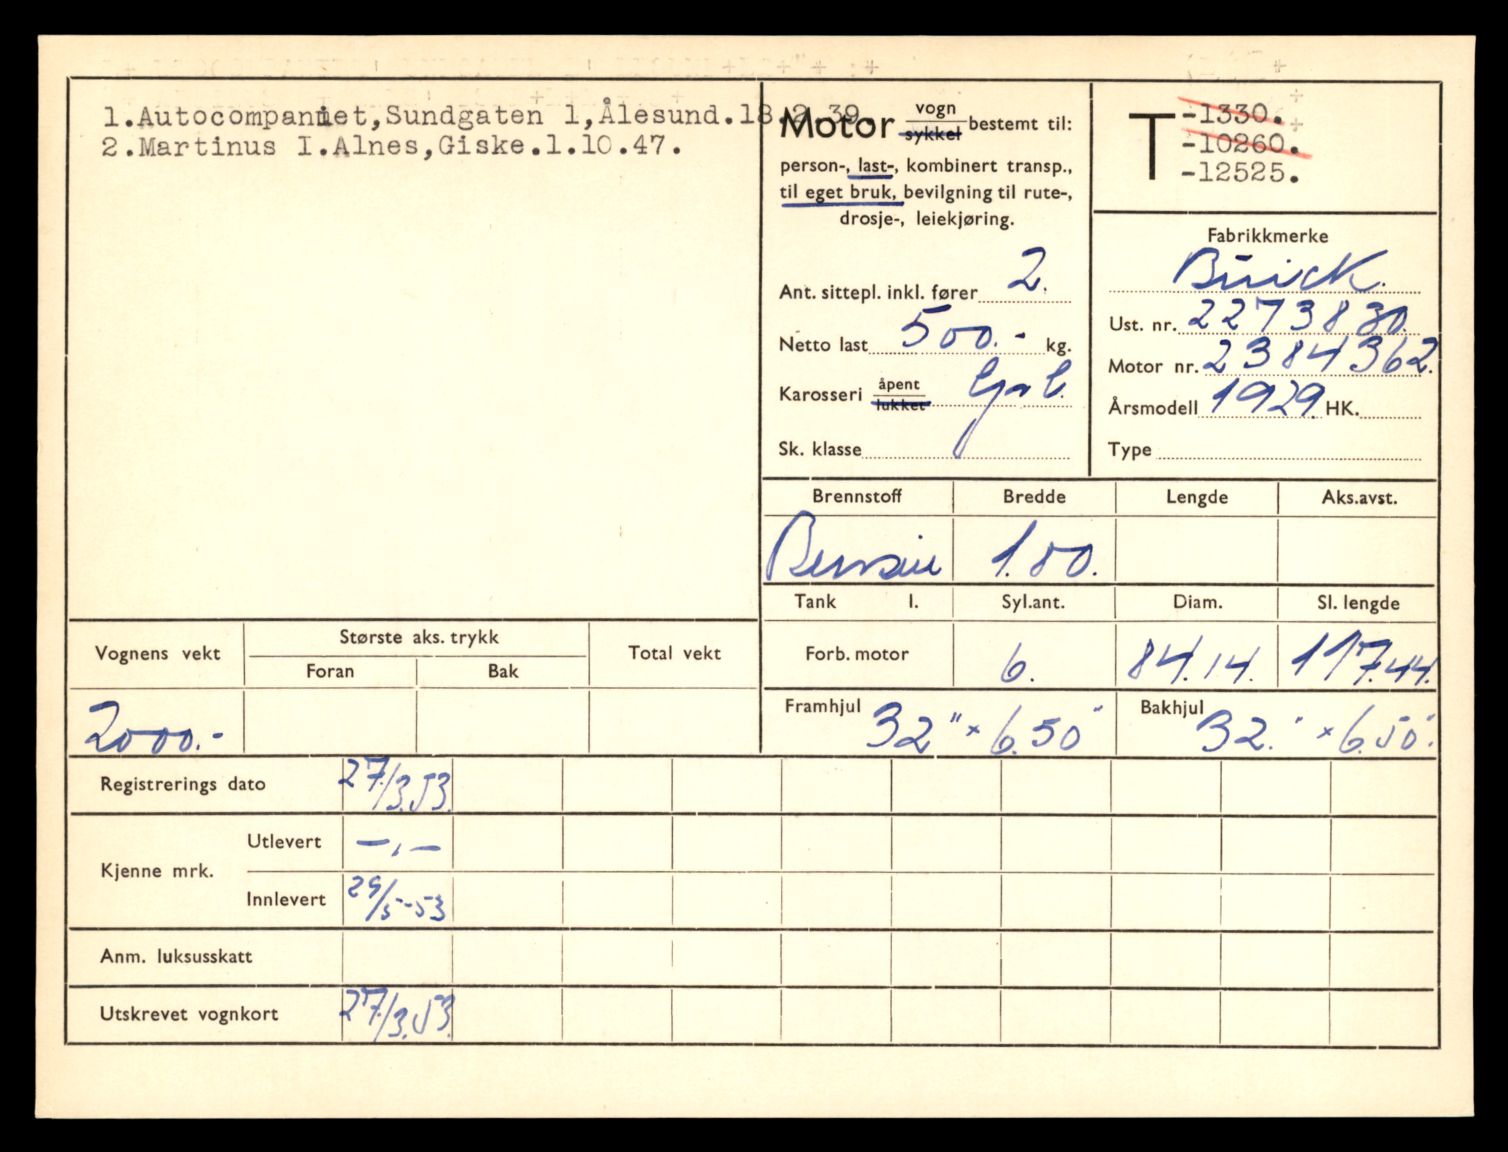 1.Autocompaniet,Sundgaten 1,Ålesund.18.2.39.
2.Martinus I.Alnes,Giske.1.10.47.
Motor vogn sykkel bestemt til:
person-, last-, kombinert transp.,
til eget bruk, bevilgning til rute-,
drosje-, leiekjøring.
Ant. sittepl. inkl. fører 2.
Netto last 500.- kg.
Karosseri åpent lukket
Sk. klasse
T -1330.
-10260.
-12525.
Fabrikkmerke
Buick.
Ust. nr. 2273830.
Motor nr. 2384362.
Årsmodell 1929. HK.
Type
Brennstoff Bredde Lengde Aks.avst.
Bensin 1.80.
Tank l. Syl.ant. Diam. Sl. lengde
Forb. motor 6. 84.14. 117.44.
Framhjul 32" × 6.50" Bakhjul 32." × 6.50".
Vognens vekt Største aks. trykk Total vekt
Foran Bak
2000.-
Registrerings dato 27/3.53.
Kjenne mrk. Utlevert —,—
Innlevert 29/5-53
Anm. luksusskatt
Utskrevet vognkort 27/3.53.